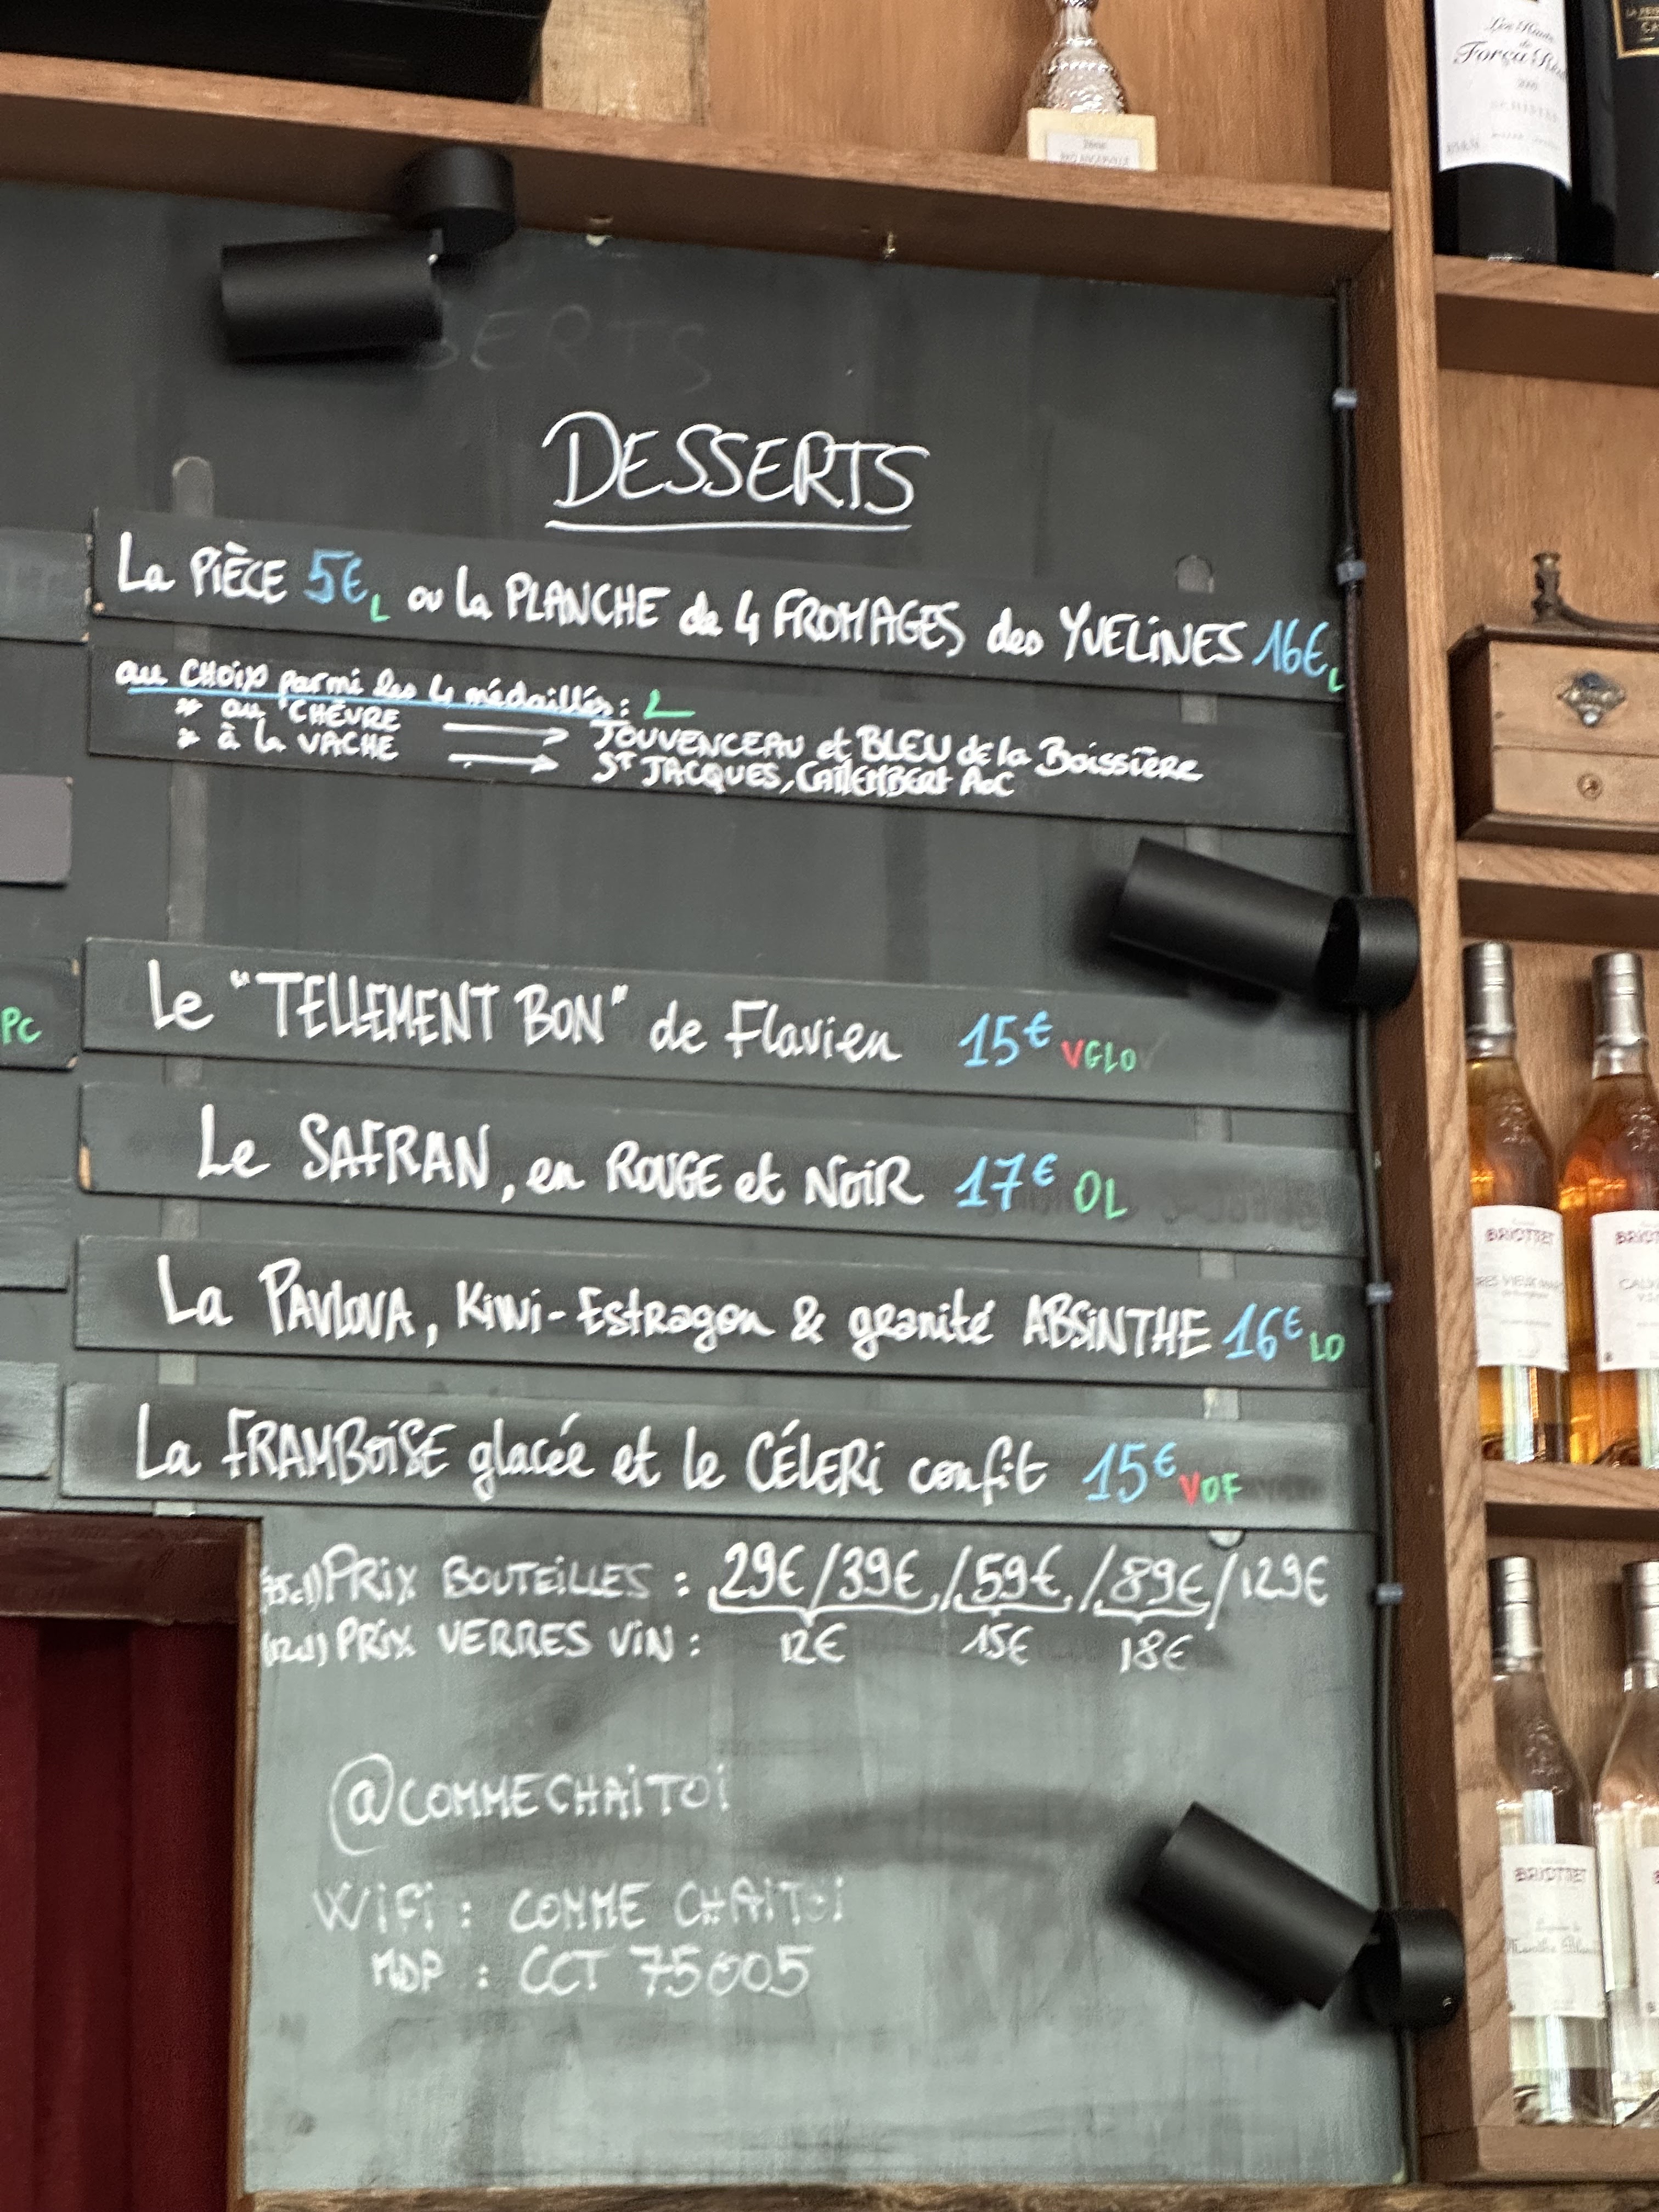 DESSERTS
La PIÈCE 5€ L ou la PLANCHE de 4 FROMAGES des YVELINES 16€ L
au CHOIX parmi les 4 médaillés : L
* au CHÈVRE → JOUVENCEAU et BLEU de la Boissière
* à la VACHE → ST JACQUES, CAMEMBERT AOC
PC
Le "TELLEMENT BON" de Flavien 15€ VGLO
Le SAFRAN, en ROUGE et NOIR 17€ OL
La PAVLOVA, Kiwi-Estragon & granité ABSINTHE 16€ LO
La FRAMBOISE glacée et le CÉLERI confit 15€ VOF
(75cl) PRIX BOUTEILLES : 29€ / 39€ / 59€ / 89€ / 129€
(12cl) PRIX VERRES VIN : 12€ 15€ 18€
@COMMECHAITOI
WIFI : COMME CHAITOI
MDP : CCT 75005
Les Hauts
de
Força Réal
BRIOTTET
BRIOTTET